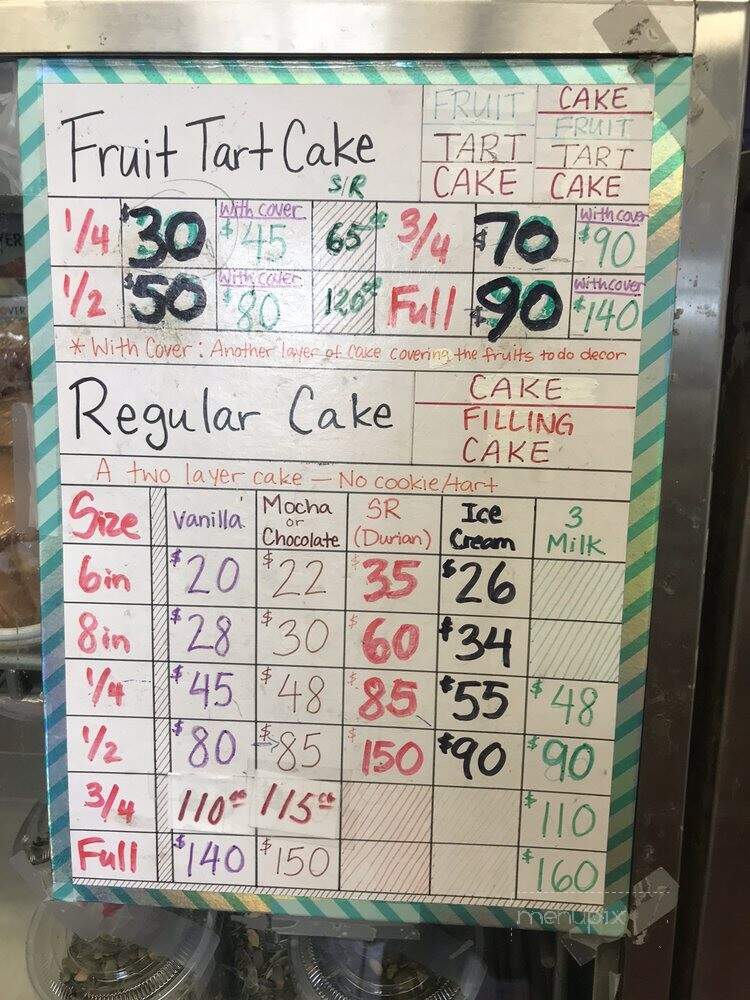 Fruit Tart Cake
S/R
FRUIT
TART
CAKE
CAKE
FRUIT
TART
CAKE
1/4 $30 With cover $45 65⁰⁰ 3/4 $70 With cover $90
1/2 $50 With cover $80 120⁰⁰ Full $90 With cover $140
* With Cover: Another layer of cake covering the fruits to do decor
Regular Cake
CAKE
FILLING
CAKE
A two layer cake — No cookie/tart
Size Vanilla Mocha or Chocolate SR (Durian) Ice Cream 3 Milk
6in $20 $22 $35 $26
8in $28 $30 $60 $34
1/4 $45 $48 $85 $55 $48
1/2 $80 $85 $150 $90 $90
3/4 110⁰⁰ 115⁰⁰ $110
Full $140 $150 $160
menupix